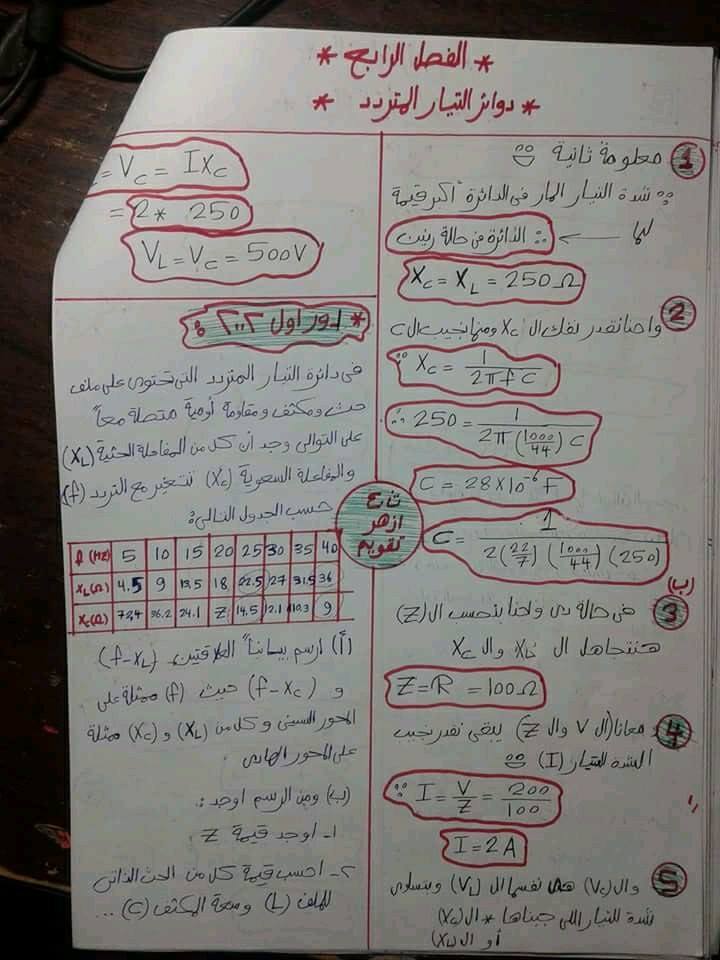 * الفصل الرابع *
* دوائر التيار المتردد *
1 معلومة ثانية
∵ شدة التيار المار فى الدائرة أكبر قيمة
لما ← ∴ الدائرة فى حالة رنين
Xc = XL = 250 Ω
2 واحنا نقدر نفك ال Xc ومنها نجيب ال C
∵ Xc = 1 / 2πfC
∴ 250 = 1 / 2π(1000/44) C
C = 28 × 10⁻⁶ F
C = 1 / 2(22/7)(1000/44)(250)
(ب)
3 فى حالة دى واحنا بنحسب ال (Z)
هنتجاهل ال XL وال Xc
Z = R = 100 Ω
4 معانا (ال V وال Z) يبقى نقدر نجيب
الشدة للتيار (I)
∵ I = V/Z = 200/100
I = 2A
5 وال (Vc) هى نفسها ال (VL) وبتساوى
شدة التيار اللى جبناها * ال (Xc)
أو ال (XL)
= Vc = IXc
= 2 * 250
VL = Vc = 500V
تابع
ازهر
تقويم
* دور اول ٢٠٠٢ :
فى دائرة التيار المتردد التى تحتوى على ملف
حث ومكثف ومقاومة أومية متصلة معاً
على التوالى وجد أن كل من المفاعلة الحثية (XL)
والمفاعلة السعوية (Xc) تتغير مع التردد (f)
حسب الجدول التالى :
f (HZ) 5 10 15 20 25 30 35 40
XL(Ω) 4.5 9 13.5 18 22.5 27 31.5 36
Xc(Ω) 72.4 36.2 24.1 Z 14.5 12.1 10.3 9
(أ) ارسم بيانياً العلاقتين (f-XL)
و (f-Xc) حيث (f) ممثلة على
المحور السينى وكل من (XL) و (Xc) ممثلة
على المحور الصادى
(ب) ومن الرسم اوجد :
١- اوجد قيمة Z
٢- احسب قيمة كل من الحث الذاتى
للملف (L) وسعة المكثف (C) ...